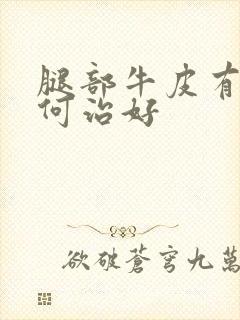 腿部牛皮有
何治好
欲破蒼穹九萬